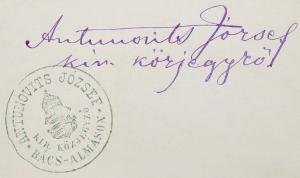 Antunovits József
kir. körjegyző
ANTUNOVITS JÓZSEF
KIR. KÖZJEGYZŐ
BÁCS-ALMÁSON